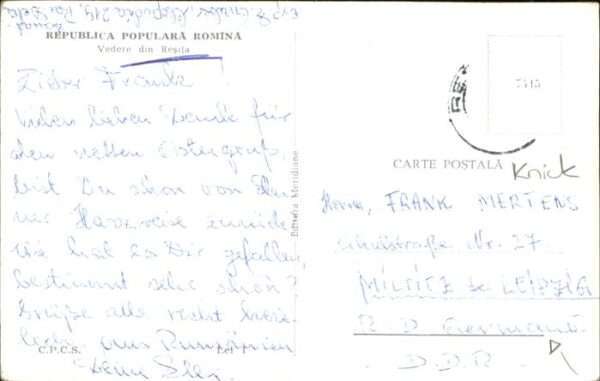 REPUBLICA POPULARĂ ROMÎNĂ
Vedere din Reșița
Lieber Frank
Vielen lieben Dank für
den netten Ostergruß,
bist Du schon von
Harzreise zurück
wie hat es Dir gefallen
bestimmt sehr schön?
Grüße alle recht herz-
lich aus Rumänien
Dein
C.P.C.S.
Lei
Editura Meridiane
CARTE POSTALĂ
Knick
FRANK MERTENS
Schulstraße Nr. 27
MILTITZ be LEIPZIG
R D Germană
D.D.R.